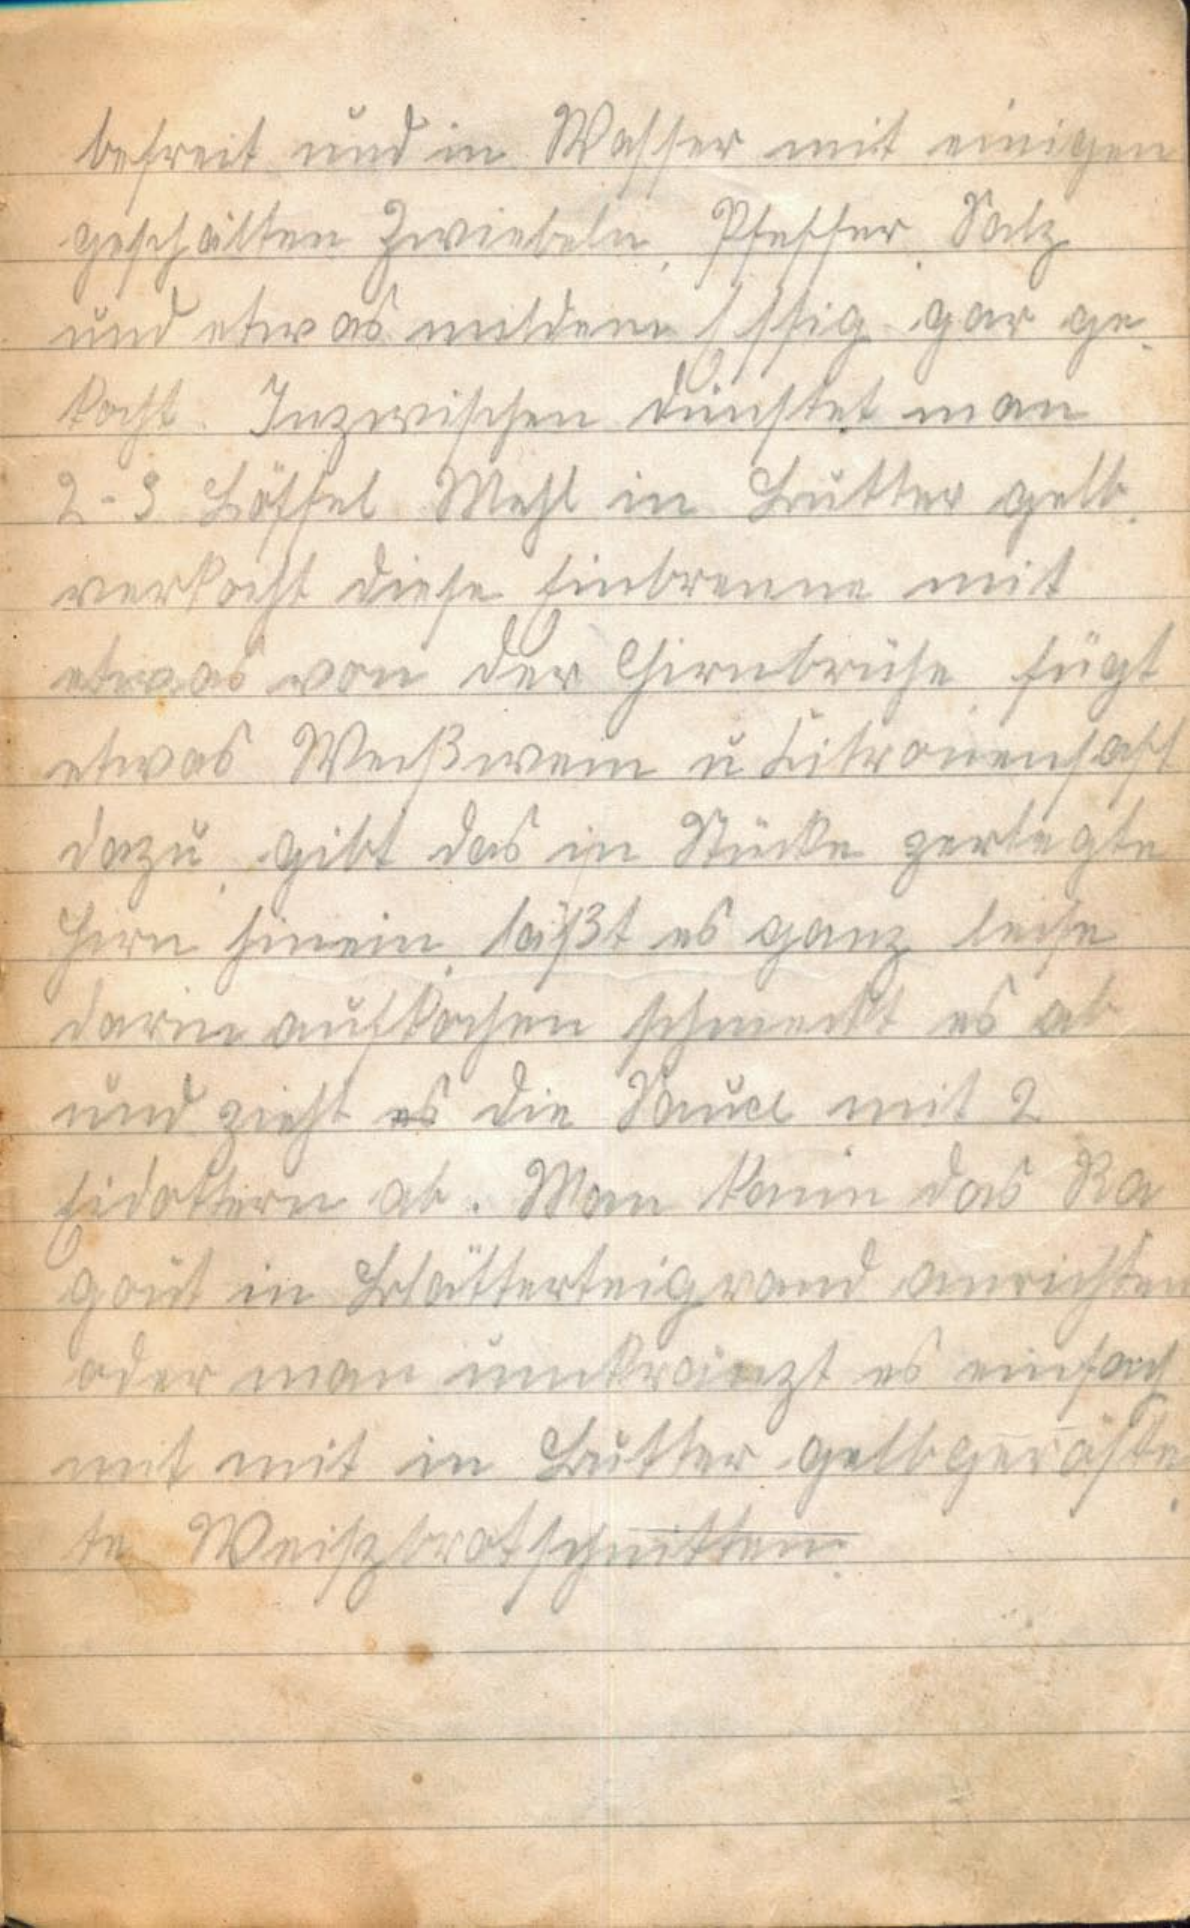 befreit und in Wasser mit einigen
geschälten Zwiebeln, Pfeffer, Salz
und etwas mildem Essig gar ge-
kocht. Inzwischen dünstet man
2-3 Löffel Mehl in Butter gelb,
verkocht diese Einbrenne mit
etwas von der Hirnbrühe, fügt
etwas Weißwein u Citronensaft
dazu, gibt das in Stücke zerlegte
Hirn hinein, läßt es ganz leise
darin aufkochen schmeckt es ab
und zieht es die Sauce mit 2
Eidottern ab. Man kann das Ra
gout in Blätterteigrand anrichten
oder man umkränzt es einfach
mit mit in Butter gelbgeröste
te Weiszbrotschnitten.